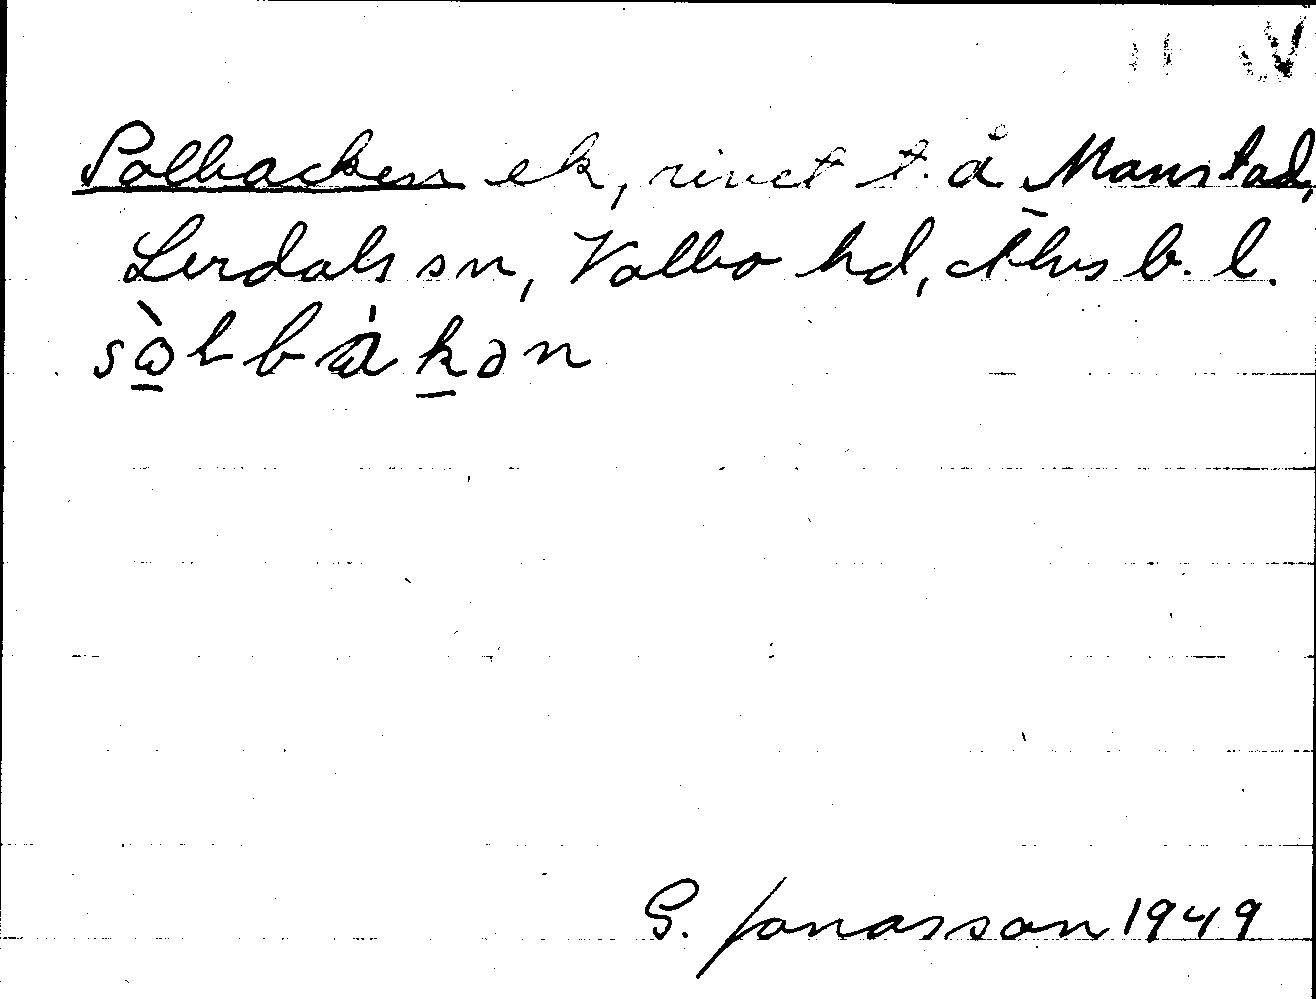 Solbacken ek, rivet t. å Manstad,
Lerdals sn, Valbo hd, Älvs b. l.
sὼlbàkən
G. Jonasson 1949